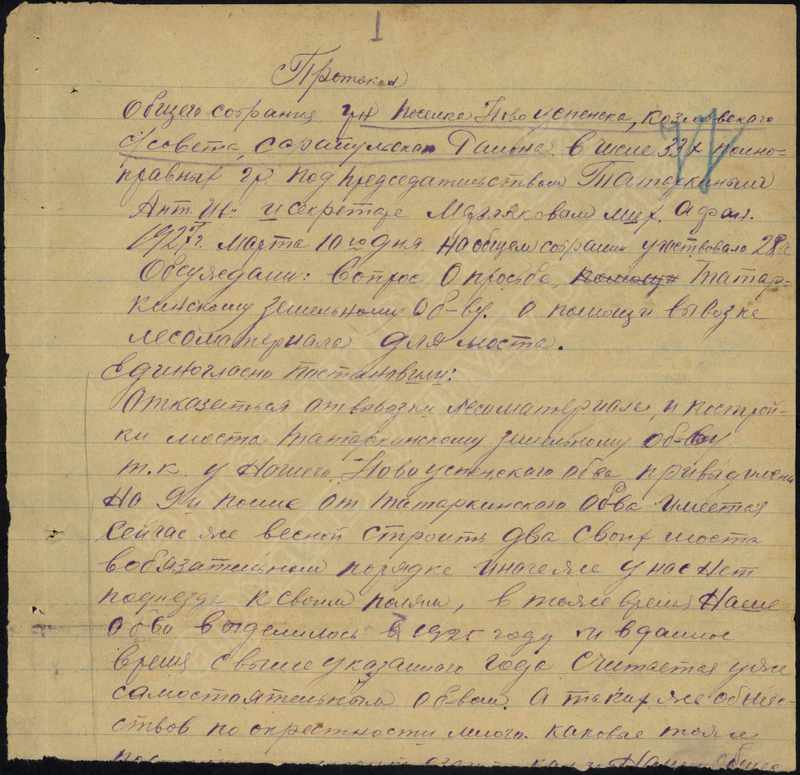 1
Протокол
Общего собрания гр-н поселка Ново успенска, Козловского
с/совета, Сарапульская Района в числе 33х полно-
правных гр. под председательством Татаркиным
Ант. Ив. и секретаре Мал
1927 г. Марта 10 го дня на общем собрании участвовало 28
Обсуждали: Вопрос о просьбе Татар-
кинскому земельному Об-ву. о помощи вывозке
лесоматериала для моста.
Единогласно постановили:
Отказаться от вывозки лесоматериала, и построй-
ки моста Татаркинскому земельному об-ву
т.к. у Нашего Ново успенского об-ва при
На поле от Татаркинского Об-ва имеется
сейчас же весной строить два своих моста
в обязательном порядке иначе же у нас нет
подъезда к своим полям, в тоже время Наше
об-во выделилось в 1925 году и в данное
время с выше указанного года считается уже
самостоятельным об-вом. А таких же общес-
твов по окрестности много. каковые тоже